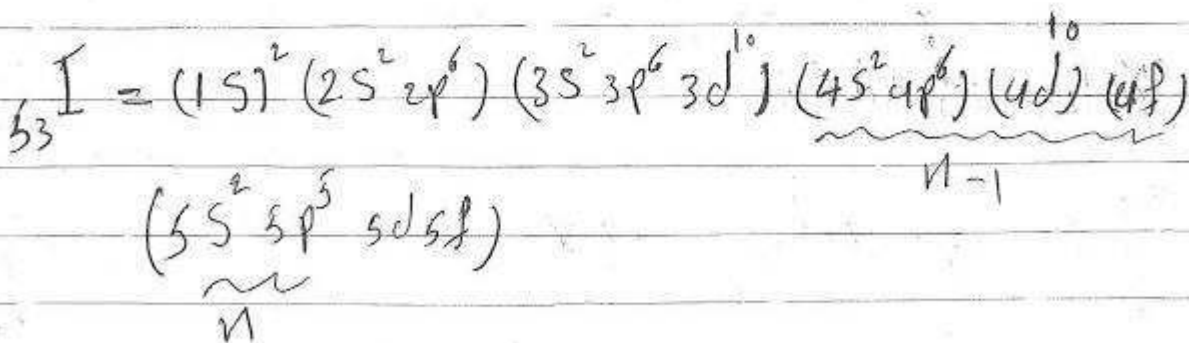 ₅₃I = (1S)² (2S² 2p⁶) (3S² 3p⁶ 3d¹⁰) (4S² 4p⁶) (4d¹⁰) (4f)
n-1
(5S² 5p⁵ 5d 5f)
n